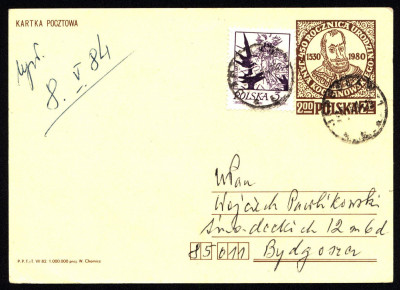 KARTKA POCZTOWA
450 ROCZNICA URODZIN
JANA KOCHANOWSKIEGO
1530 1980
2.00 POLSKA
POLSKA 5
8. V. 84
Wojciech Pawlikowski
Śniadeckich 12 m 6d
85011 Bydgoszcz
P.P.T.i T. VII 83. 1.000.000 proj. W. Chomicz